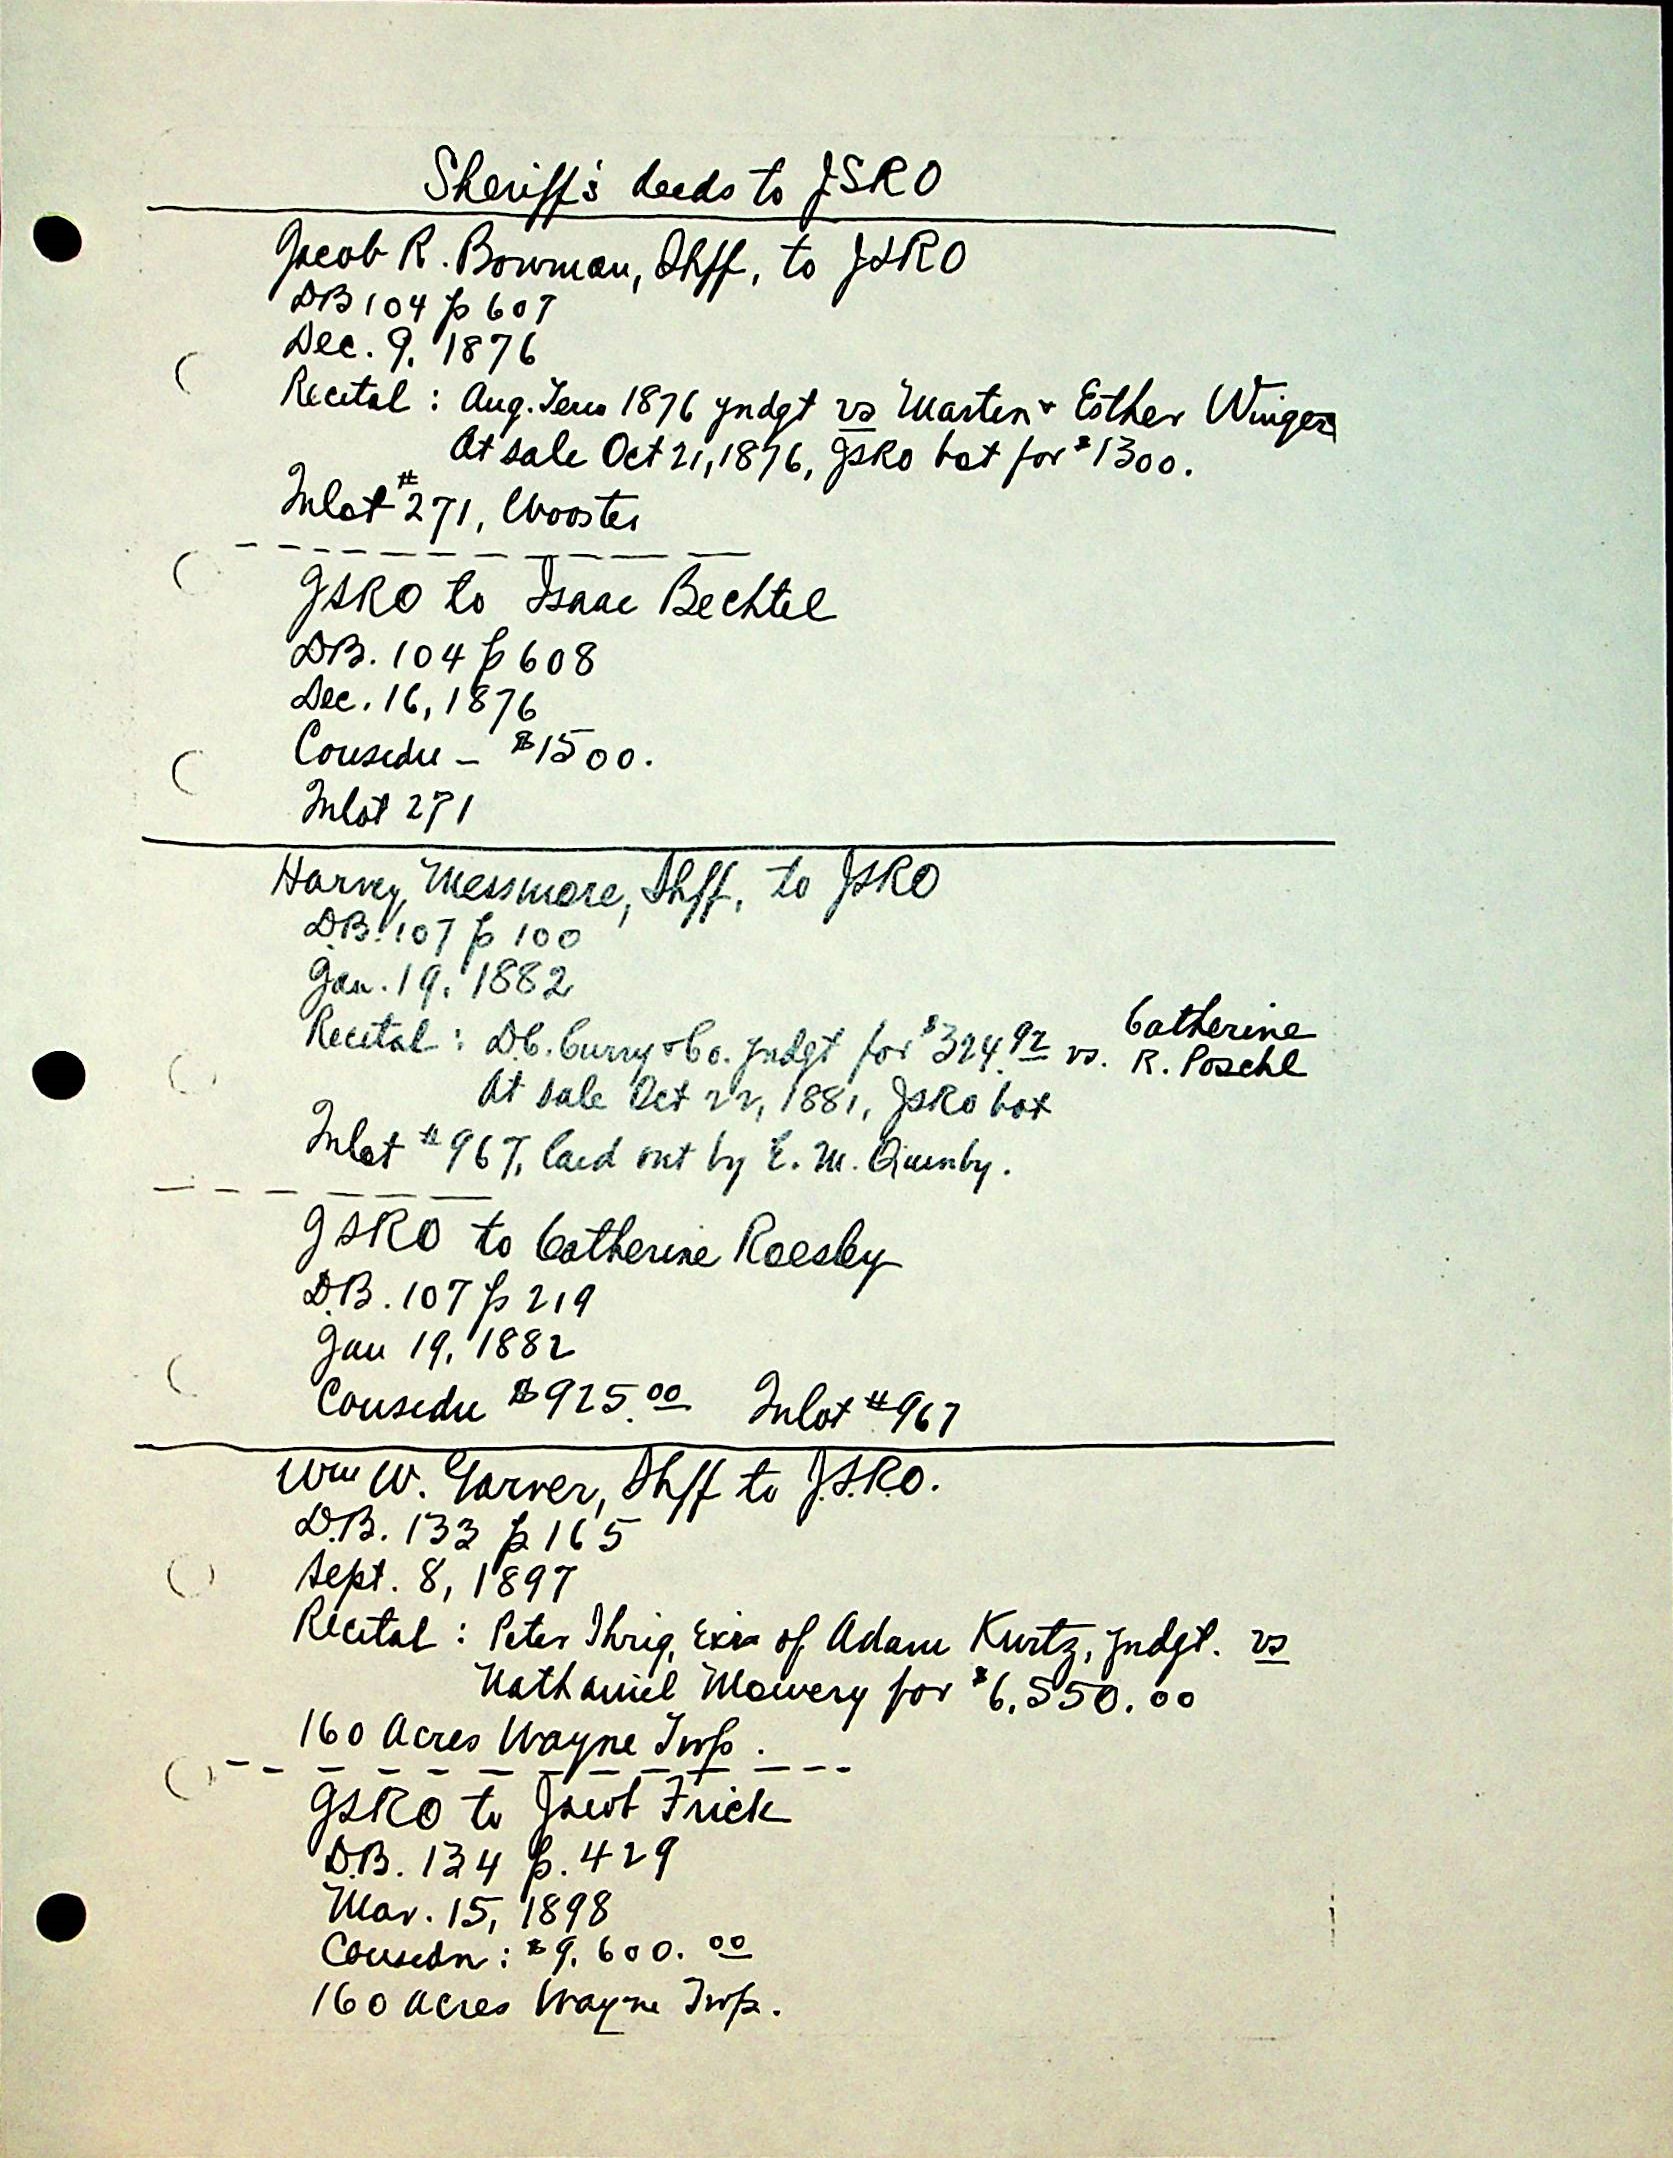 Sheriff's deeds to JSRO
Jacob R. Bowman, Shff, to JSRO
DB 104 p 607
Dec. 9, 1876
Recital : Aug. Term 1876 judgt vs Martin & Esther Winger
At sale Oct 21, 1876, JSRO bot for $1300.
Inlot #271, Wooster
JSRO to Isaac Bechtel
DB. 104 p 608
Dec. 16, 1876
Consedn - $1500.
Inlot 271
Harvey Messmore, Shff, to JSRO
D.B. 107 p 100
Jan. 19, 1882
Recital : D.C. Curry & Co. judgt for $324.92 vs. Catherine R. Poschl
At sale Oct 22, 1881, JSRO bot
Inlot #967, laid out by E. M. Quinby.
JSRO to Catherine Roesby
D.B. 107 p 219
Jan 19, 1882
Consedn $925.00 Inlot #967
Wm W. Garver, Shff to J.S.R.O.
D.B. 133 p 165
Sept. 8, 1897
Recital : Peter Ihrig, Exr of Adam Kurtz, judgt. vs
Nathaniel Mowery for $6,550.00
160 Acres Wayne Twp.
JSRO to Jacob Frick
D.B. 134 p. 429
Mar. 15, 1898
Consedn : $9,600.00
160 acres Wayne Twp.